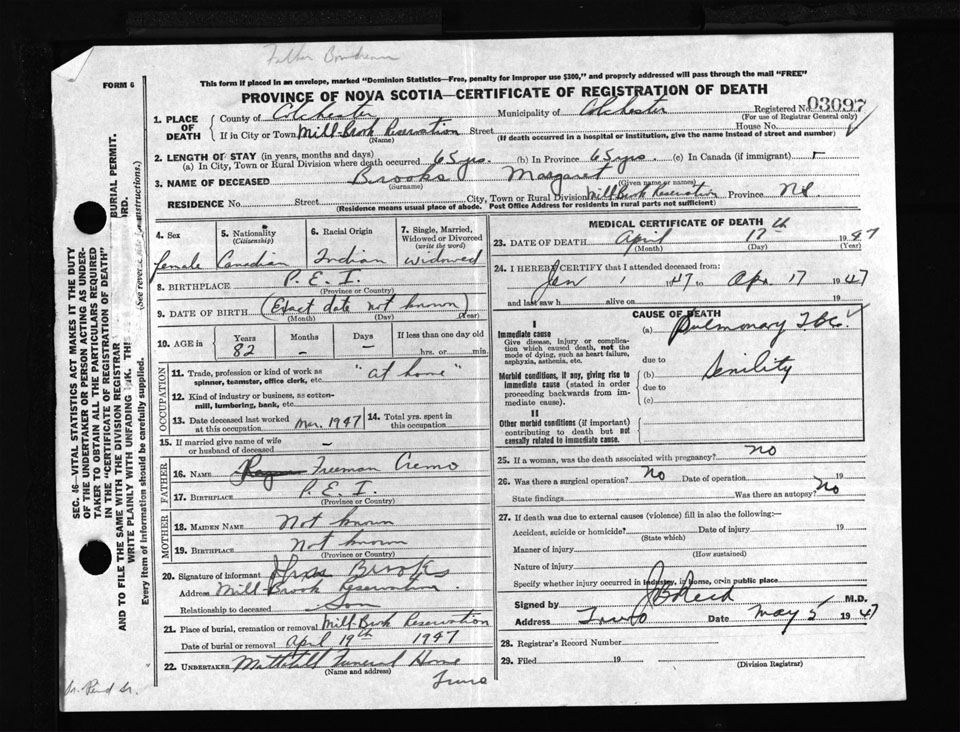 Father Boudreau
FORM 6
This form if placed in an envelope, marked "Dominion Statistics—Free, penalty for improper use $300," and properly addressed will pass through the mail "FREE"
PROVINCE OF NOVA SCOTIA—CERTIFICATE OF REGISTRATION OF DEATH
Registered No. 03097
(For use of Registrar General only)
1. PLACE OF DEATH
County of Colchester Municipality of Colchester
If in City or Town Mill-Brook Reservation Street House No.
(Name) (If death occurred in a hospital or institution, give the name instead of street and number)
2. LENGTH OF STAY (in years, months and days)
(a) In City, Town or Rural Division where death occurred 65 yrs. (b) In Province 65 yrs. (c) In Canada (if immigrant)
3. NAME OF DECEASED Brooks Margaret
(Surname) (Given name or names)
RESIDENCE No. Street City, Town or Rural Division Mill Brook Reservation Province N.S.
(Residence means usual place of abode. Post Office Address for residents in rural parts not sufficient)
4. Sex
female
5. Nationality
(Citizenship)
Canadian
6. Racial Origin
Indian
7. Single, Married, Widowed or Divorced
(write the word)
widowed
8. BIRTHPLACE P.E.I.
(Province or Country)
9. DATE OF BIRTH (Exact date not known)
(Month) (Day) (Year)
10. AGE in
Years Months Days If less than one day old
82 – – hrs. or min.
OCCUPATION
11. Trade, profession or kind of work as
spinner, teamster, office clerk, etc. "at home"
12. Kind of industry or business, as cotton-
mill, lumbering, bank, etc.
13. Date deceased last worked at this occupation Mar. 1947
14. Total yrs. spent in this occupation
15. If married give name of wife
or husband of deceased –
FATHER
16. NAME Freeman Cremo
17. BIRTHPLACE P.E.I.
(Province or Country)
MOTHER
18. MAIDEN NAME Not known
19. BIRTHPLACE Not known
(Province or Country)
20. Signature of informant Brooks
Address Mill-Brook Reservation
Relationship to deceased Son
21. Place of burial, cremation or removal Mill-Brook Reservation
Date of burial or removal April 19th 1947
22. UNDERTAKER Mattatall Funeral Home
(Name and address)
Truro
MEDICAL CERTIFICATE OF DEATH
23. DATE OF DEATH April 17th 1947
(Month) (Day) (Year)
24. I HEREBY CERTIFY that I attended deceased from:
Jan 1 1947 to Apr 17 1947
and last saw h alive on 19
CAUSE OF DEATH
I
Immediate cause
Give disease, injury or complication which caused death, not the mode of dying, such as heart failure, asphyxia, asthenia, etc.
(a) Pulmonary TBC.
due to
Morbid conditions, if any, giving rise to immediate cause (stated in order proceeding backwards from immediate cause).
(b) Senility
due to
(c)
II
Other morbid conditions (if important) contributing to death but not causally related to immediate cause.
25. If a woman, was the death associated with pregnancy? no
26. Was there a surgical operation? No Date of operation 19
State findings Was there an autopsy? No
27. If death was due to external causes (violence) fill in also the following:—
Accident, suicide or homicide? Date of injury 19
(State which)
Manner of injury
(How sustained)
Nature of injury
Specify whether injury occurred in industry, in home, or in public place
Signed by Reid M.D.
Address Truro Date May 5 1947
28. Registrar's Record Number
29. Filed 19
(Division Registrar)
SEC. 16—VITAL STATISTICS ACT MAKES IT THE DUTY
OF THE UNDERTAKER OR PERSON ACTING AS UNDER-
TAKER TO OBTAIN ALL THE PARTICULARS REQUIRED
IN THE "CERTIFICATE OF REGISTRATION OF DEATH"
AND TO FILE THE SAME WITH THE DIVISION REGISTRAR
BURIAL PERMIT.
WRITE PLAINLY WITH UNFADING
Every item of information should be carefully supplied. (See reverse